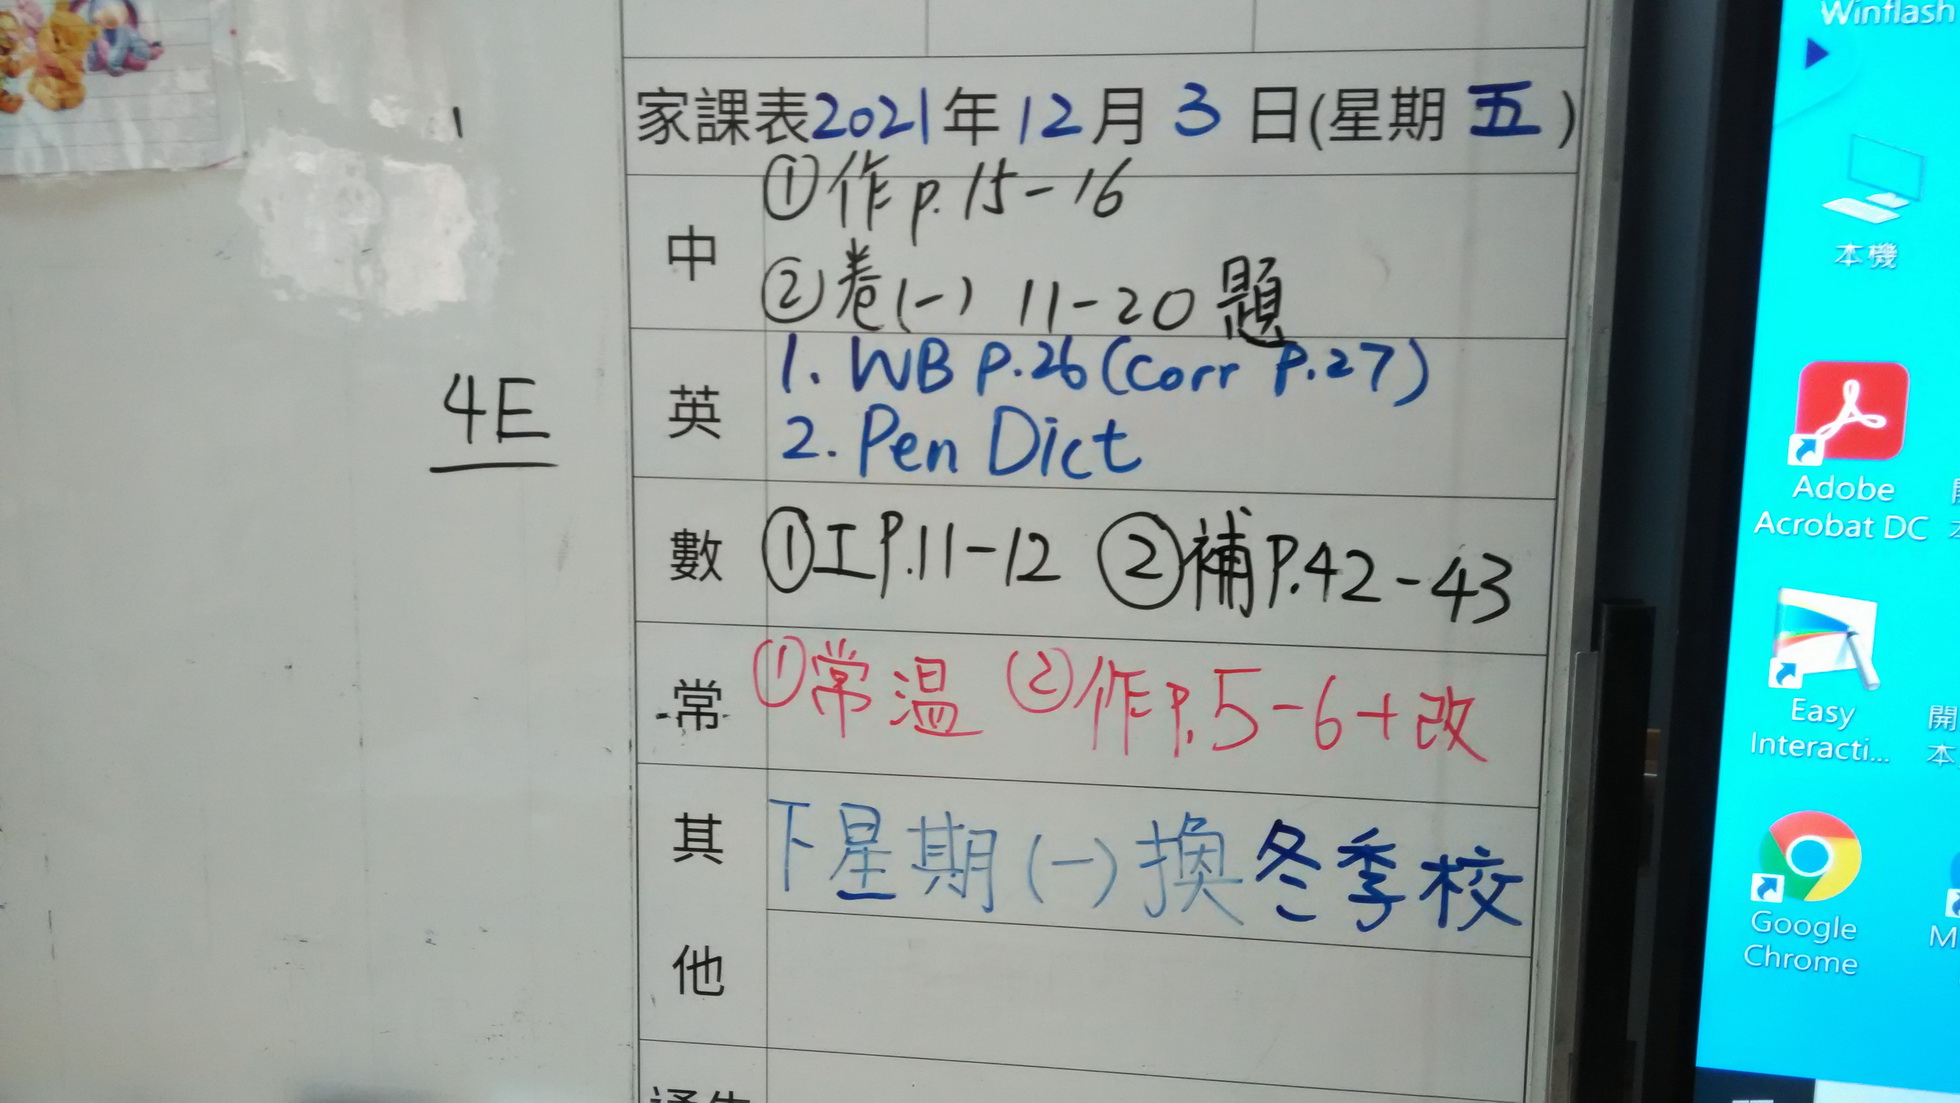 家課表2021年12月3日(星期五)
中
①作p.15-16
②卷(一) 11-20題
4E
英
1. WB P.26(Corr P.27)
2. Pen Dict
數
①工P.11-12 ②補P.42-43
常
①常温 ②作P.5-6+改
其他
下星期(一)換冬季校
Winflash
本機
Adobe
Acrobat DC
Easy
Interacti...
Google
Chrome
開
本
M